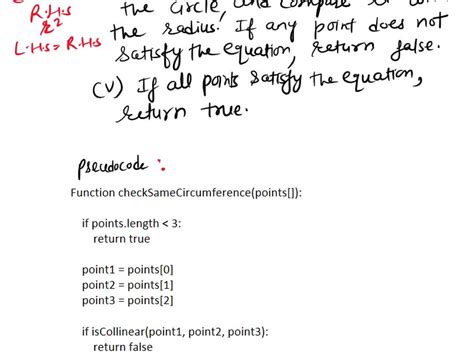 R.H.S
r2
L.H.S = R.H.S
the circle, and compare
the radius. If any point does not
satisfy the equation, return false.
(V) If all points satisfy the equation,
return true.
Pseudocode :
Function checkSameCircumference(points[]):
if points.length < 3:
return true
point1 = points[0]
point2 = points[1]
point3 = points[2]
if isCollinear(point1, point2, point3):
return false